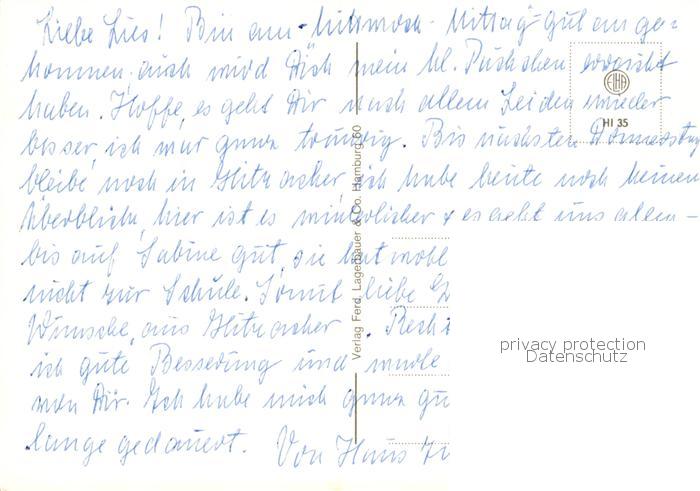 Liebe Lies! Bin am Mittwoch-Mittag gut ange=
kommen, auch wird Dich mein kl. Päckchen erreicht
haben. Hoffe, es geht Dir nach allem Leiden wieder
besser, ich war ganz traurig. Bis nächsten Donnerstag
bleibe noch in Hitzacker, ich habe heute noch keinen
Überblick, hier ist es winterlicher + es geht uns allen -
bis auf Sabine gut, sie hat wohl
nicht zur Schule. Somit liebe
Wünsche, aus Hitzacker.
ich gute Besserung und
von Dir. Ich habe mich ganz
lange gedauert. Von Haus
EIHA
HI 35
Verlag Ferd. Lagerbauer & Co. Hamburg 60
privacy protection
Datenschutz